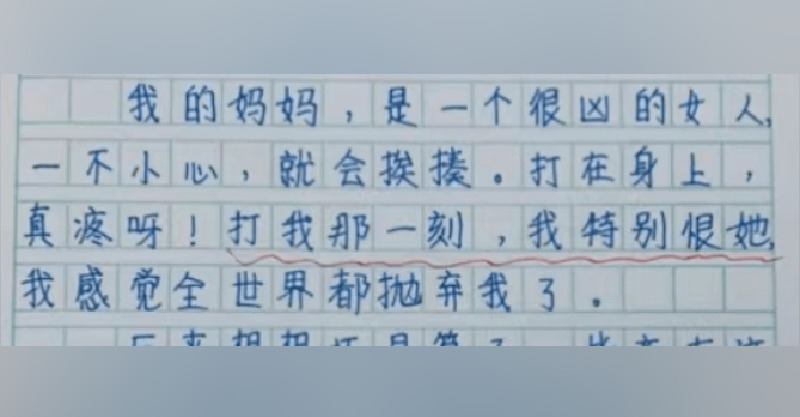 我的妈妈，是一个很凶的女人，
一不小心，就会挨揍。打在身上，
真疼呀！打我那一刻，我特别恨她，
我感觉全世界都抛弃我了。